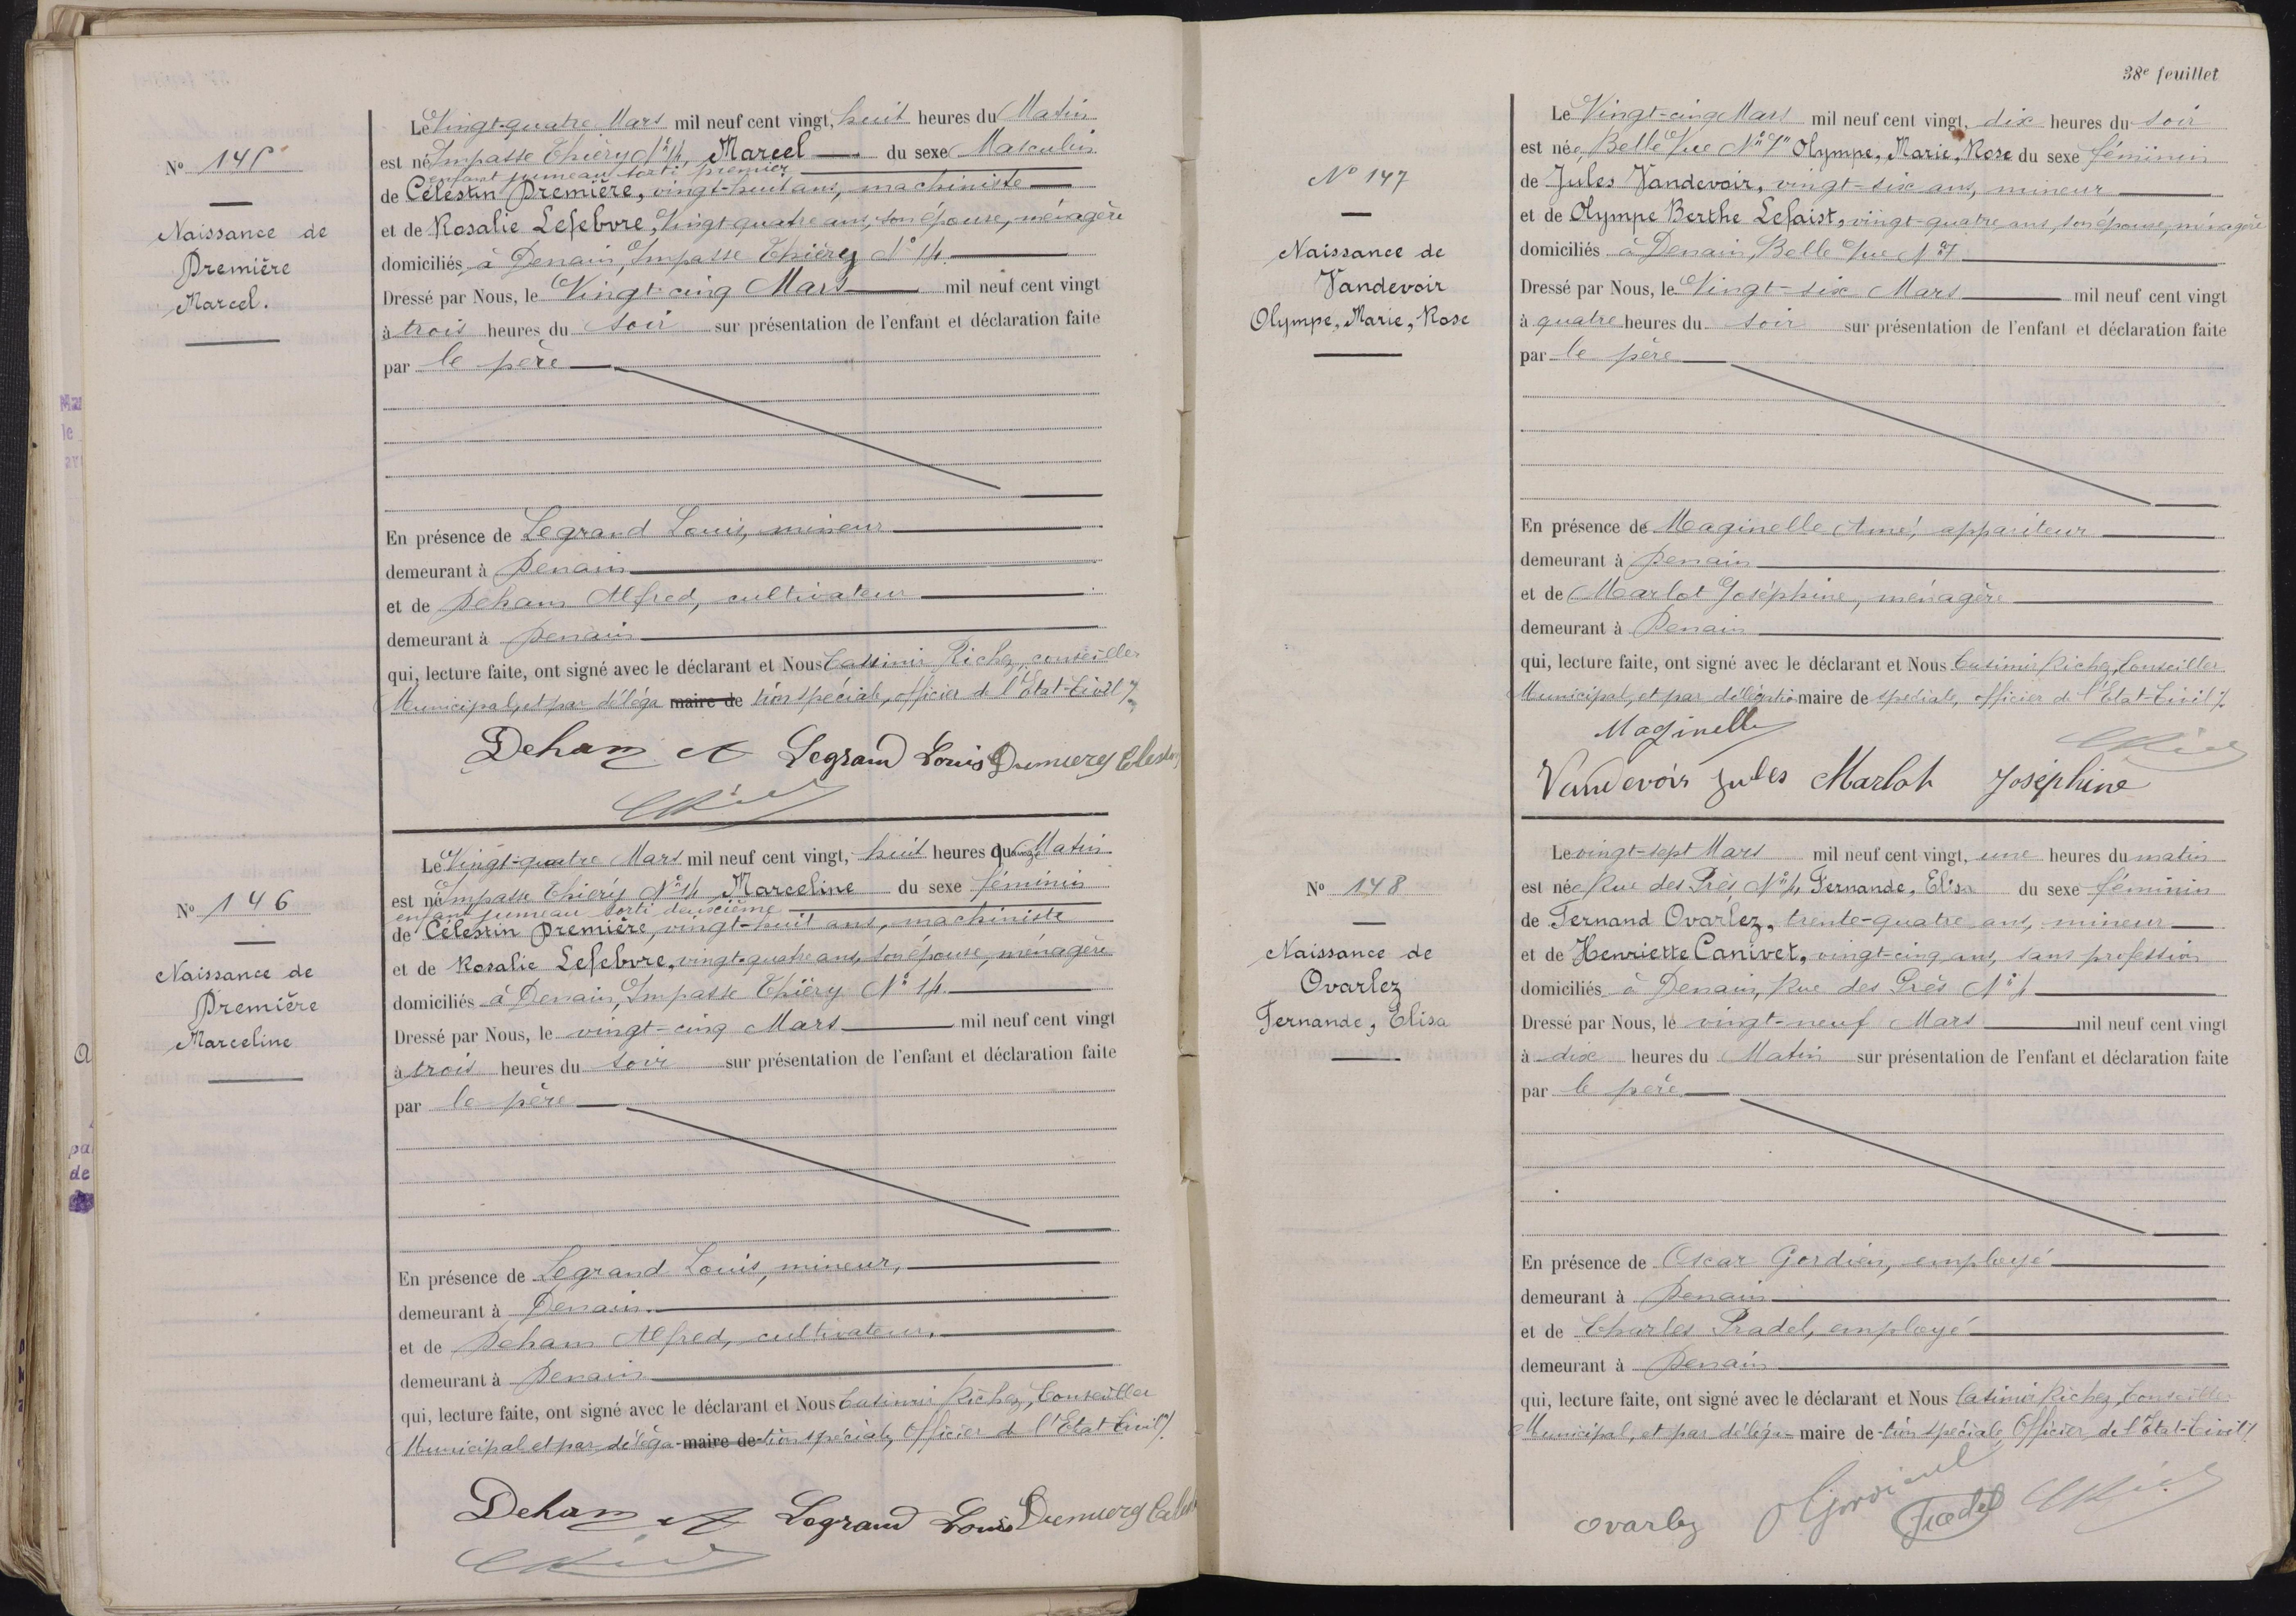 Nº 145
Naissance de
Première
Marcel.
Le Vingt-quatre Mars mil neuf cent vingt, huit heures du Matin
est né Impasse Thiéry Nº 14, Marcel du sexe Masculin
enfant jumeau sorti premier
de Célestin Première, vingt-huit ans, machiniste
et de Rosalie Lefebvre, Vingt-quatre ans, son épouse, ménagère
domiciliés à Denain, Impasse Thiéry Nº 14.
Dressé par Nous, le Vingt-cinq Mars mil neuf cent vingt
à trois heures du soir sur présentation de l'enfant et déclaration faite
par le père
En présence de Legrand Louis, mineur
demeurant à Denain
et de Deham Alfred, cultivateur
demeurant à Denain
qui, lecture faite, ont signé avec le déclarant et Nous Casimir Richez, conseiller
Municipal, et par déléga maire de tion spéciale, officier de l'Etat-Civil
Deham A Legrand Louis
Nº 146
Naissance de
Première
Marceline
Le Vingt-quatre Mars mil neuf cent vingt, huit heures du Matin
est né Impasse Thiéry Nº 14 Marceline du sexe féminin
enfant jumeau sorti deuxième
de Célestin Première, vingt-huit ans, machiniste
et de Rosalie Lefebvre, vingt-quatre ans, son épouse, ménagère
domiciliés à Denain, Impasse Thiéry Nº 14.
Dressé par Nous, le vingt-cinq Mars mil neuf cent vingt
à trois heures du soir sur présentation de l'enfant et déclaration faite
par le père
En présence de Legrand Louis, mineur,
demeurant à Denain.
et de Deham Alfred, cultivateur.
demeurant à Denain
qui, lecture faite, ont signé avec le déclarant et Nous Casimir Richez, Conseiller
Municipal et par déléga- maire de tion spéciale, Officier de l'Etat Civil
Deham A Legrand Louis
38e feuillet
Nº 147
Naissance de
Vandevoir
Olympe, Marie, Rose
Le Vingt-cinq Mars mil neuf cent vingt, dix heures du soir
est née, Belle Vue Nº 7 Olympe, Marie, Rose du sexe féminin
de Jules Vandevoir, vingt-six ans, mineur
et de Olympe Berthe Lefaist, vingt-quatre ans, son épouse, ménagère
domiciliés à Denain, Belle Vue Nº 7
Dressé par Nous, le Vingt-six Mars mil neuf cent vingt
à quatre heures du soir sur présentation de l'enfant et déclaration faite
par le père
En présence de Maginelle Aimé, appariteur
demeurant à Denain
et de Marlot Joséphine, ménagère
demeurant à Denain
qui, lecture faite, ont signé avec le déclarant et Nous Casimir Richez, Conseiller
Municipal, et par délégation maire de spéciale, officier de l'Etat-Civil
Maginelle
Vandevoir Jules Marlot Joséphine
Nº 148
Naissance de
Ovarlez
Fernande, Elisa
Le vingt-sept Mars mil neuf cent vingt, une heures du matin
est née Rue des Prés Nº 4 Fernande, Elisa du sexe féminin
de Fernand Ovarlez, trente-quatre ans, mineur
et de Henriette Canivet, vingt-cinq ans, sans profession
domiciliés à Denain, Rue des Prés Nº 4
Dressé par Nous, le vingt-neuf Mars mil neuf cent vingt
à dix heures du Matin sur présentation de l'enfant et déclaration faite
par le père
En présence de Oscar Gordien, employé
demeurant à Denain
et de Charles Pradel, employé
demeurant à Denain
qui, lecture faite, ont signé avec le déclarant et Nous Casimir Richez, Conseiller
Municipal, et par déléga- maire de -tion spéciale Officier de l'Etat-Civil
Ovarlez